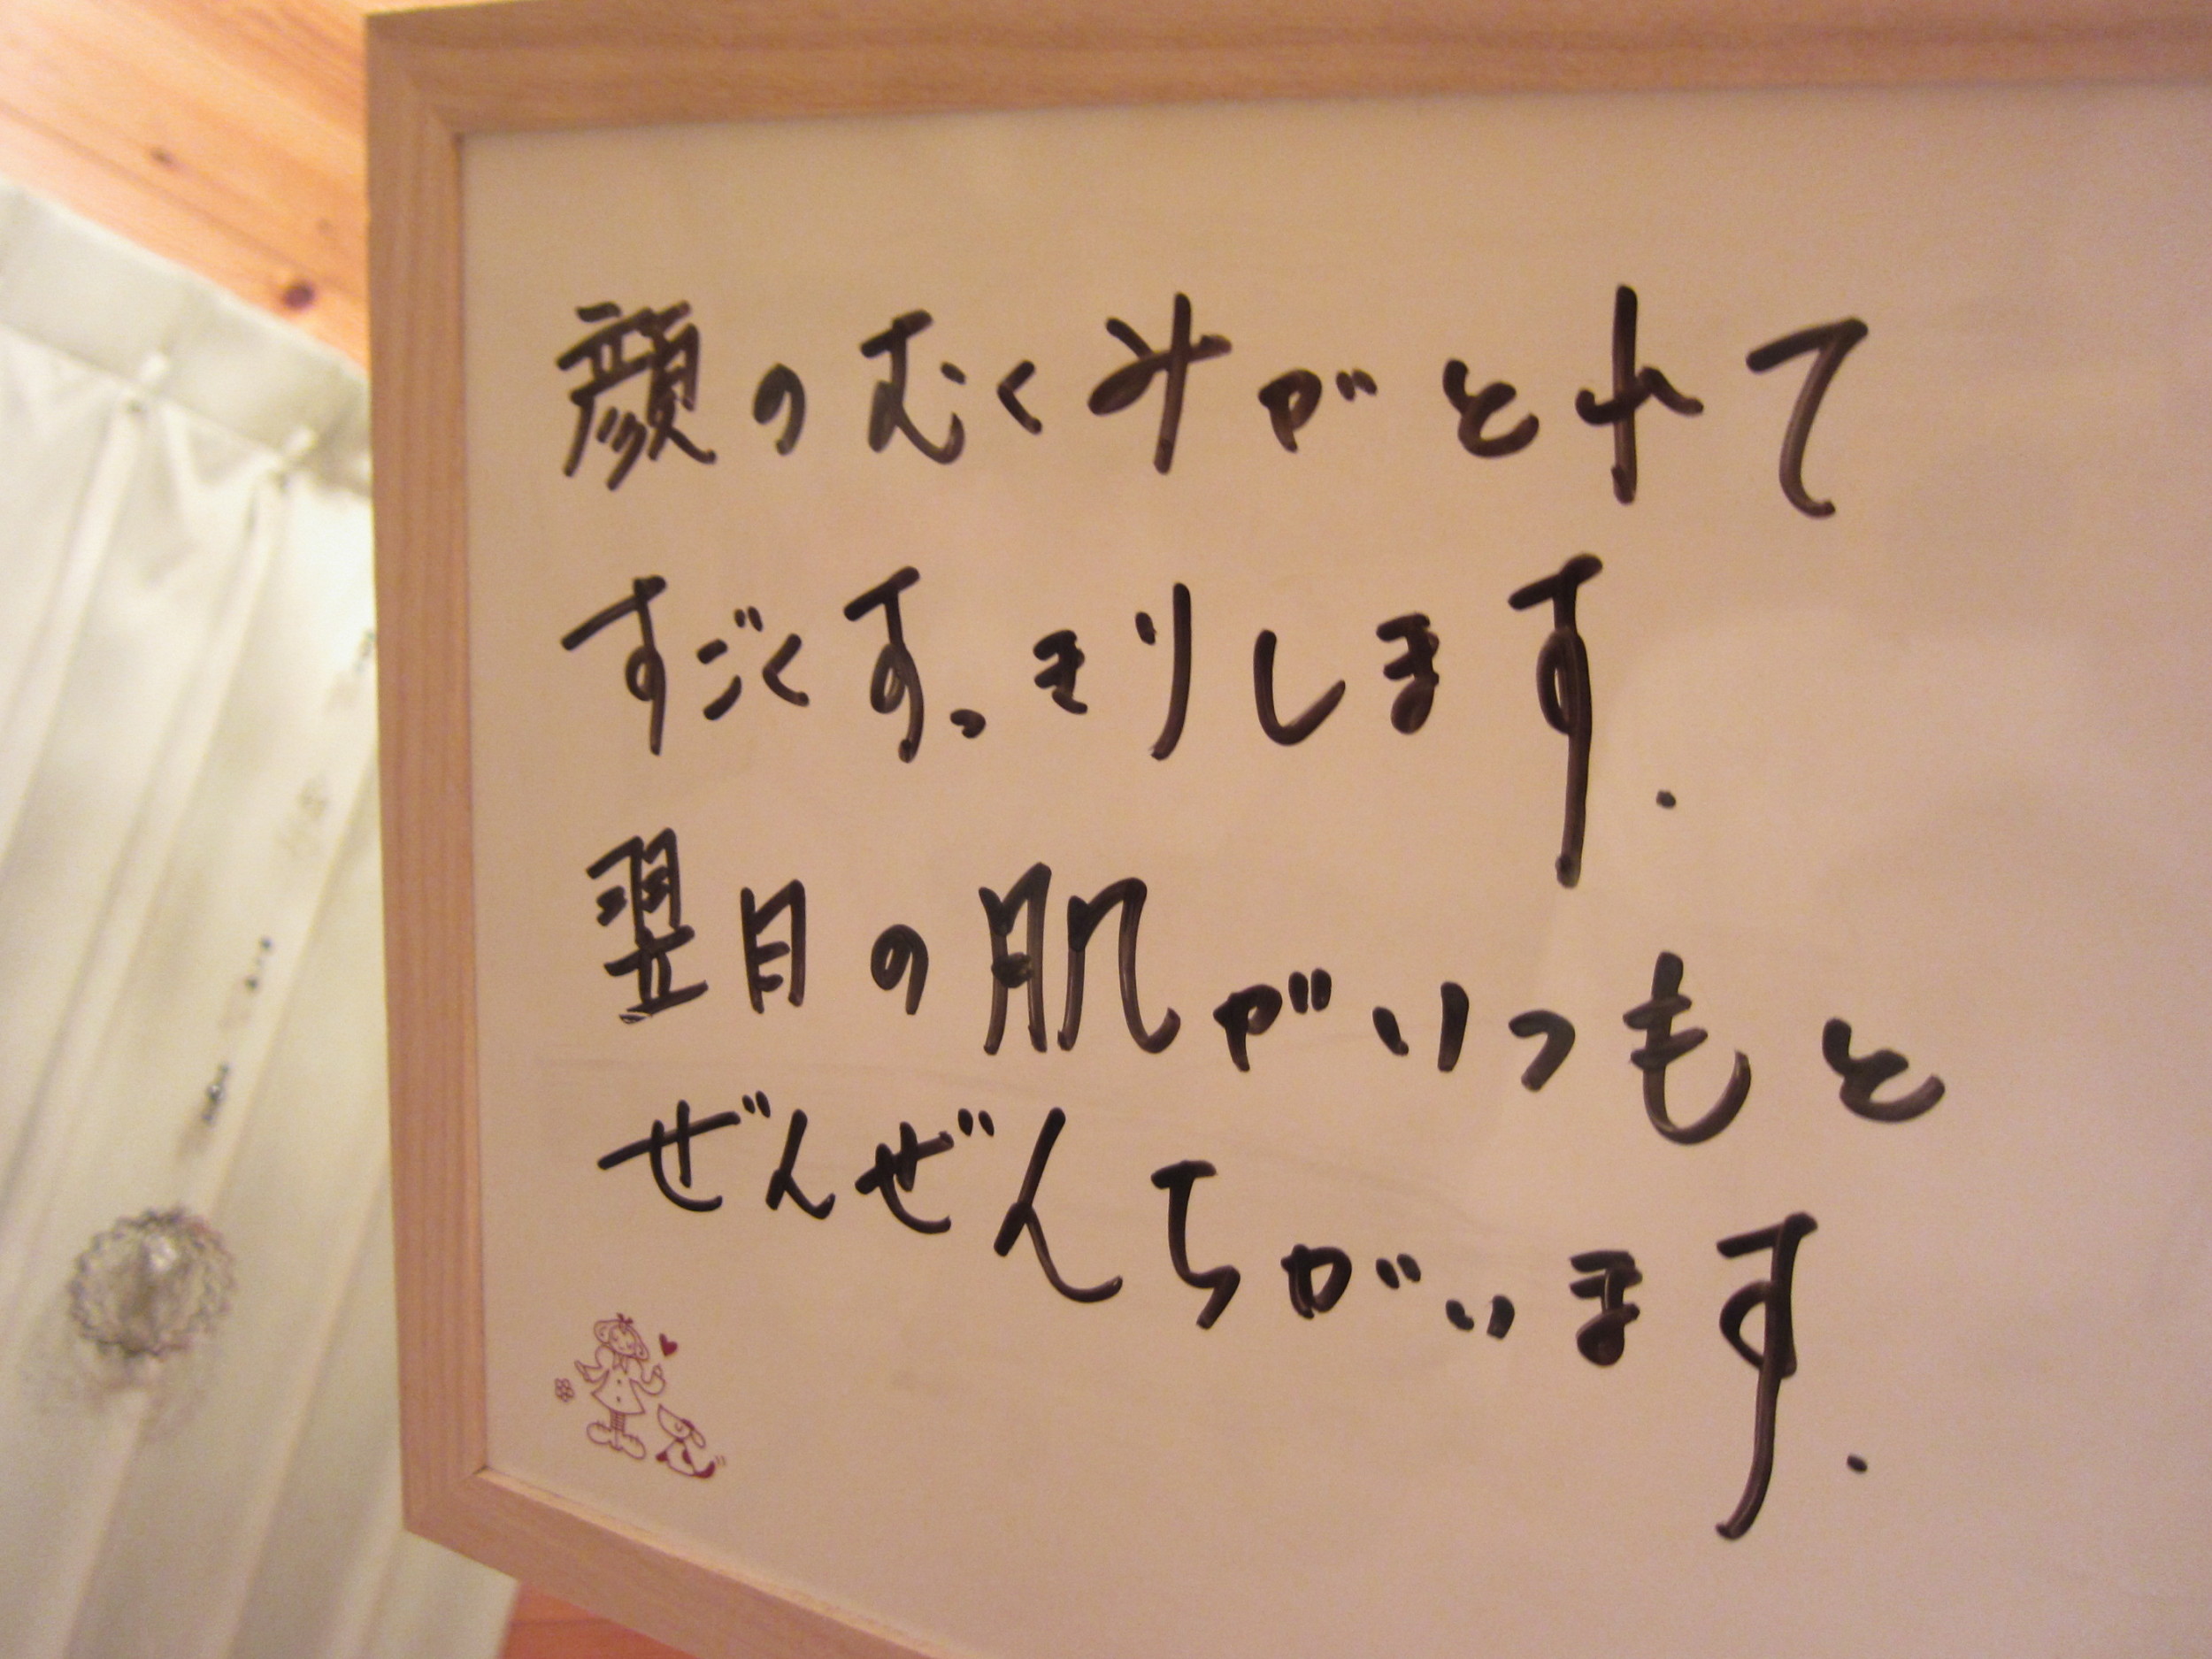 顔のむくみがとれて
すごくすっきりします.
翌日の肌がいつもと
ぜんぜんちがいます.